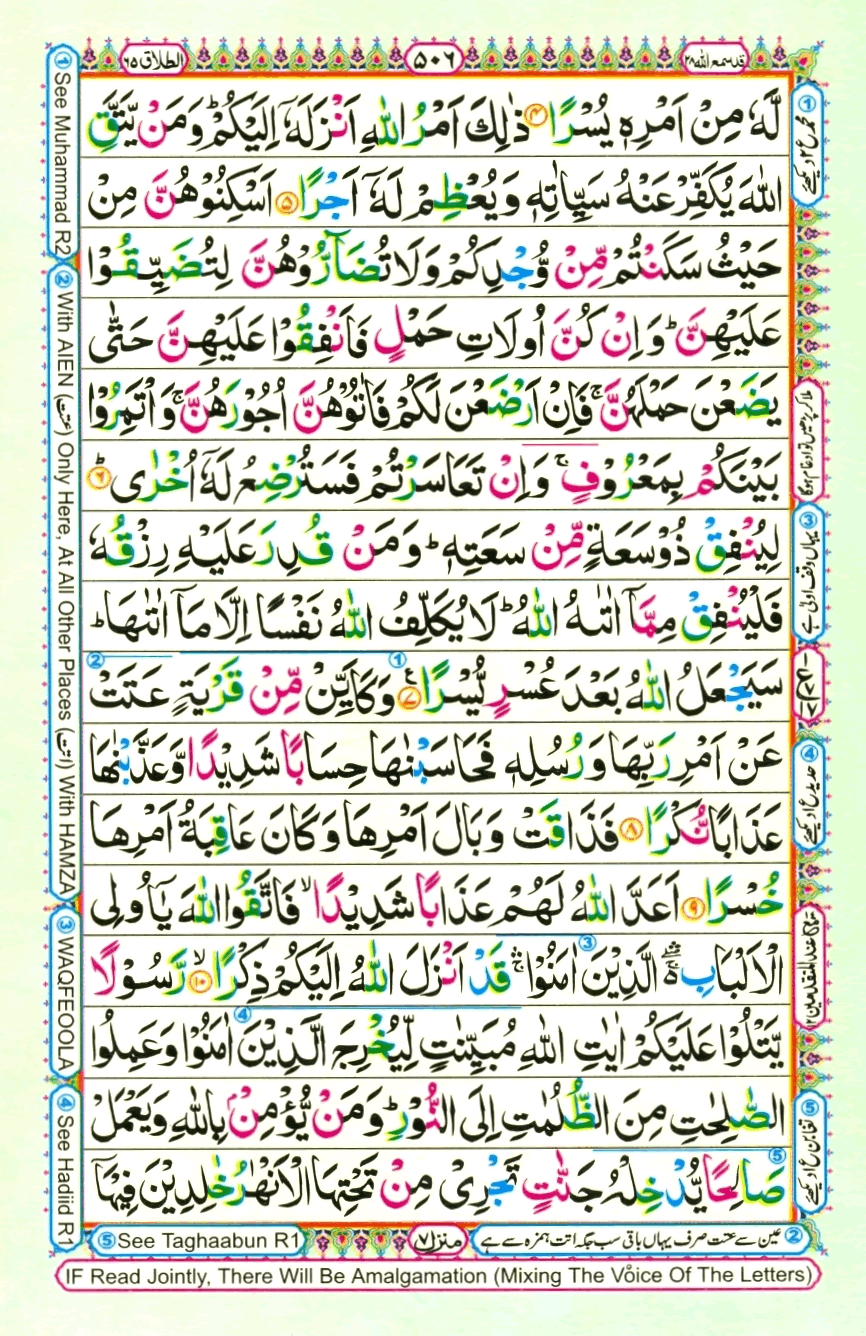 قد سمع الله ٢٨
٥٠٦
الطلاق ٦٥
لَّهٗ مِنْ اَمْرِهٖ يُسْرًا ۝۴ ذٰلِكَ اَمْرُ اللّٰهِ اَنْزَلَهٗۤ اِلَيْكُمْ ؕ وَمَنْ يَّتَّقِ
اللّٰهَ يُكَفِّرْ عَنْهُ سَيِّاٰتِهٖ وَيُعْظِمْ لَهٗۤ اَجْرًا ۝۵ اَسْكِنُوْهُنَّ مِنْ
حَيْثُ سَكَنْتُمْ مِّنْ وُّجْدِكُمْ وَلَا تُضَآرُّوْهُنَّ لِتُضَيِّقُوْا
عَلَيْهِنَّ ؕ وَاِنْ كُنَّ اُولَاتِ حَمْلٍ فَاَنْفِقُوْا عَلَيْهِنَّ حَتّٰى
يَضَعْنَ حَمْلَهُنَّ ۚ فَاِنْ اَرْضَعْنَ لَكُمْ فَاٰتُوْهُنَّ اُجُوْرَهُنَّ ۚ وَاْتَمِرُوْا
بَيْنَكُمْ بِمَعْرُوْفٍ ۚ وَاِنْ تَعَاسَرْتُمْ فَسَتُرْضِعُ لَهٗۤ اُخْرٰى ۝۶
لِيُنْفِقْ ذُوْ سَعَةٍ مِّنْ سَعَتِهٖ ؕ وَمَنْ قُدِرَ عَلَيْهِ رِزْقُهٗ
فَلْيُنْفِقْ مِمَّاۤ اٰتٰىهُ اللّٰهُ ؕ لَا يُكَلِّفُ اللّٰهُ نَفْسًا اِلَّا مَاۤ اٰتٰىهَا ؕ
سَيَجْعَلُ اللّٰهُ بَعْدَ عُسْرٍ يُّسْرًا ۝۷ وَكَاَيِّنْ مِّنْ قَرْيَةٍ عَتَتْ
عَنْ اَمْرِ رَبِّهَا وَرُسُلِهٖ فَحَاسَبْنٰهَا حِسَابًا شَدِيْدًا وَّعَذَّبْنٰهَا
عَذَابًا نُّكْرًا ۝۸ فَذَاقَتْ وَبَالَ اَمْرِهَا وَكَانَ عَاقِبَةُ اَمْرِهَا
خُسْرًا ۝۹ اَعَدَّ اللّٰهُ لَهُمْ عَذَابًا شَدِيْدًا ۙ فَاتَّقُوا اللّٰهَ يٰۤاُولِى
الْاَلْبَابِ ۛۚ الَّذِيْنَ اٰمَنُوْا ۛؕ قَدْ اَنْزَلَ اللّٰهُ اِلَيْكُمْ ذِكْرًا ۝۱۰ۙ رَّسُوْلًا
يَّتْلُوْا عَلَيْكُمْ اٰيٰتِ اللّٰهِ مُبَيِّنٰتٍ لِّيُخْرِجَ الَّذِيْنَ اٰمَنُوْا وَعَمِلُوا
الصّٰلِحٰتِ مِنَ الظُّلُمٰتِ اِلَى النُّوْرِ ؕ وَمَنْ يُّؤْمِنْۢ بِاللّٰهِ وَيَعْمَلْ
صَالِحًا يُّدْخِلْهُ جَنّٰتٍ تَجْرِىْ مِنْ تَحْتِهَا الْاَنْهٰرُ خٰلِدِيْنَ فِيْهَاۤ
① محمد ع ۲ دیکھئے
ملا کر پڑھیں تو ادغام ہوگا
③ یہاں وقف اولیٰ ہے
④ حدید ع ۱ دیکھئے
⑤ تغابن ع ۱ دیکھئے
① See Muhammad R2
② With AIEN (عتت) Only Here, At All Other Places (اتت) With HAMZA
③ WAQFEOOLA
④ See Hadiid R1
② عین سے عتت صرف یہاں باقی سب جگہ اتت ہمزہ سے ہے
منزل ٧
⑤ See Taghaabun R1
IF Read Jointly, There Will Be Amalgamation (Mixing The Voice Of The Letters)